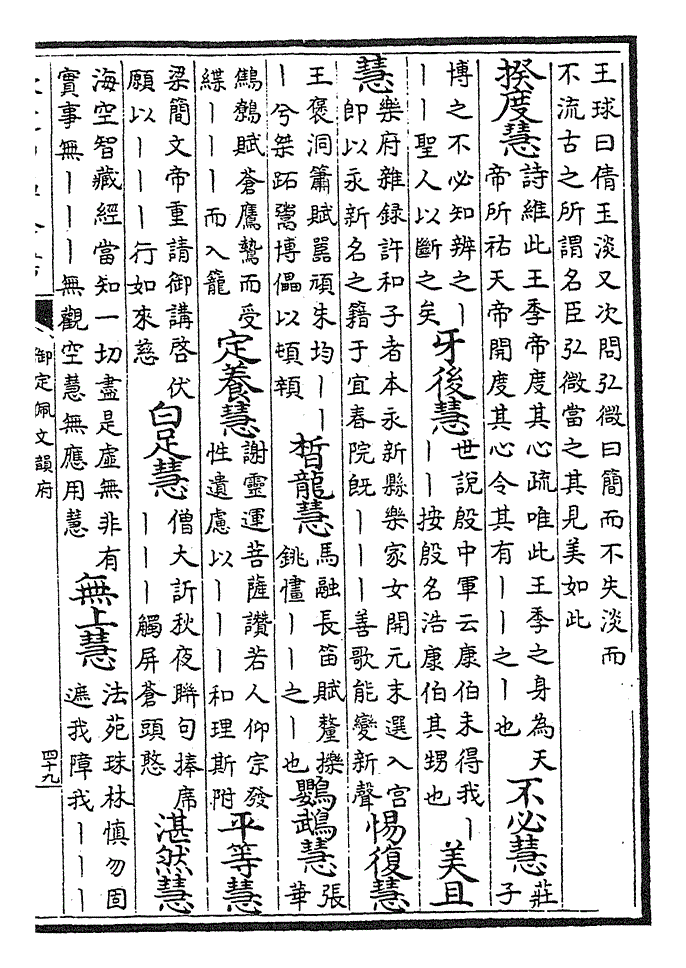 王球曰倩玉淡又次問弘微曰簡而不失淡而
不流古之所謂名臣弘微當之其見美如此
揆度慧
詩維此王季帝度其心疏唯此王季之身為天
帝所祐天帝開度其心令其有丨丨之丨也
不必慧
莊
子
博之不必知辨之丨
丨丨聖人以斷之矣
牙後慧
世說殷中軍云康伯未得我丨
丨丨按殷名浩康伯其甥也
美且
慧
樂府雜録許和子者本永新縣樂家女開元末選入宮
即以永新名之籍于宜春院旣丨丨丨善歌能變新聲
惕復慧
王褒洞簫賦嚚頑朱均丨丨
丨兮桀跖鬻博儡以頓顇
晳龍慧
馬融長笛賦鏊擽
銚㦎丨丨之丨也
鸚鵡慧
張
華
鷦鷯賦蒼鷹鷙而受
緤丨丨丨而入籠
定養慧
謝靈運菩薩讚若人仰宗發
性遺慮以丨丨丨和理斯附
平等慧
梁簡文帝重請御講啓伏
願以丨丨丨行如來慈
白足慧
僧大訢秋夜聨句捧席
丨丨丨觸屏蒼頭憨
湛然慧
海空智藏經當知一切盡是虛無非有
實事無丨丨丨無觀空慧無應用慧
無上慧
法苑珠林慎勿固
遮我障我丨丨丨
御定佩文韻府
四十九